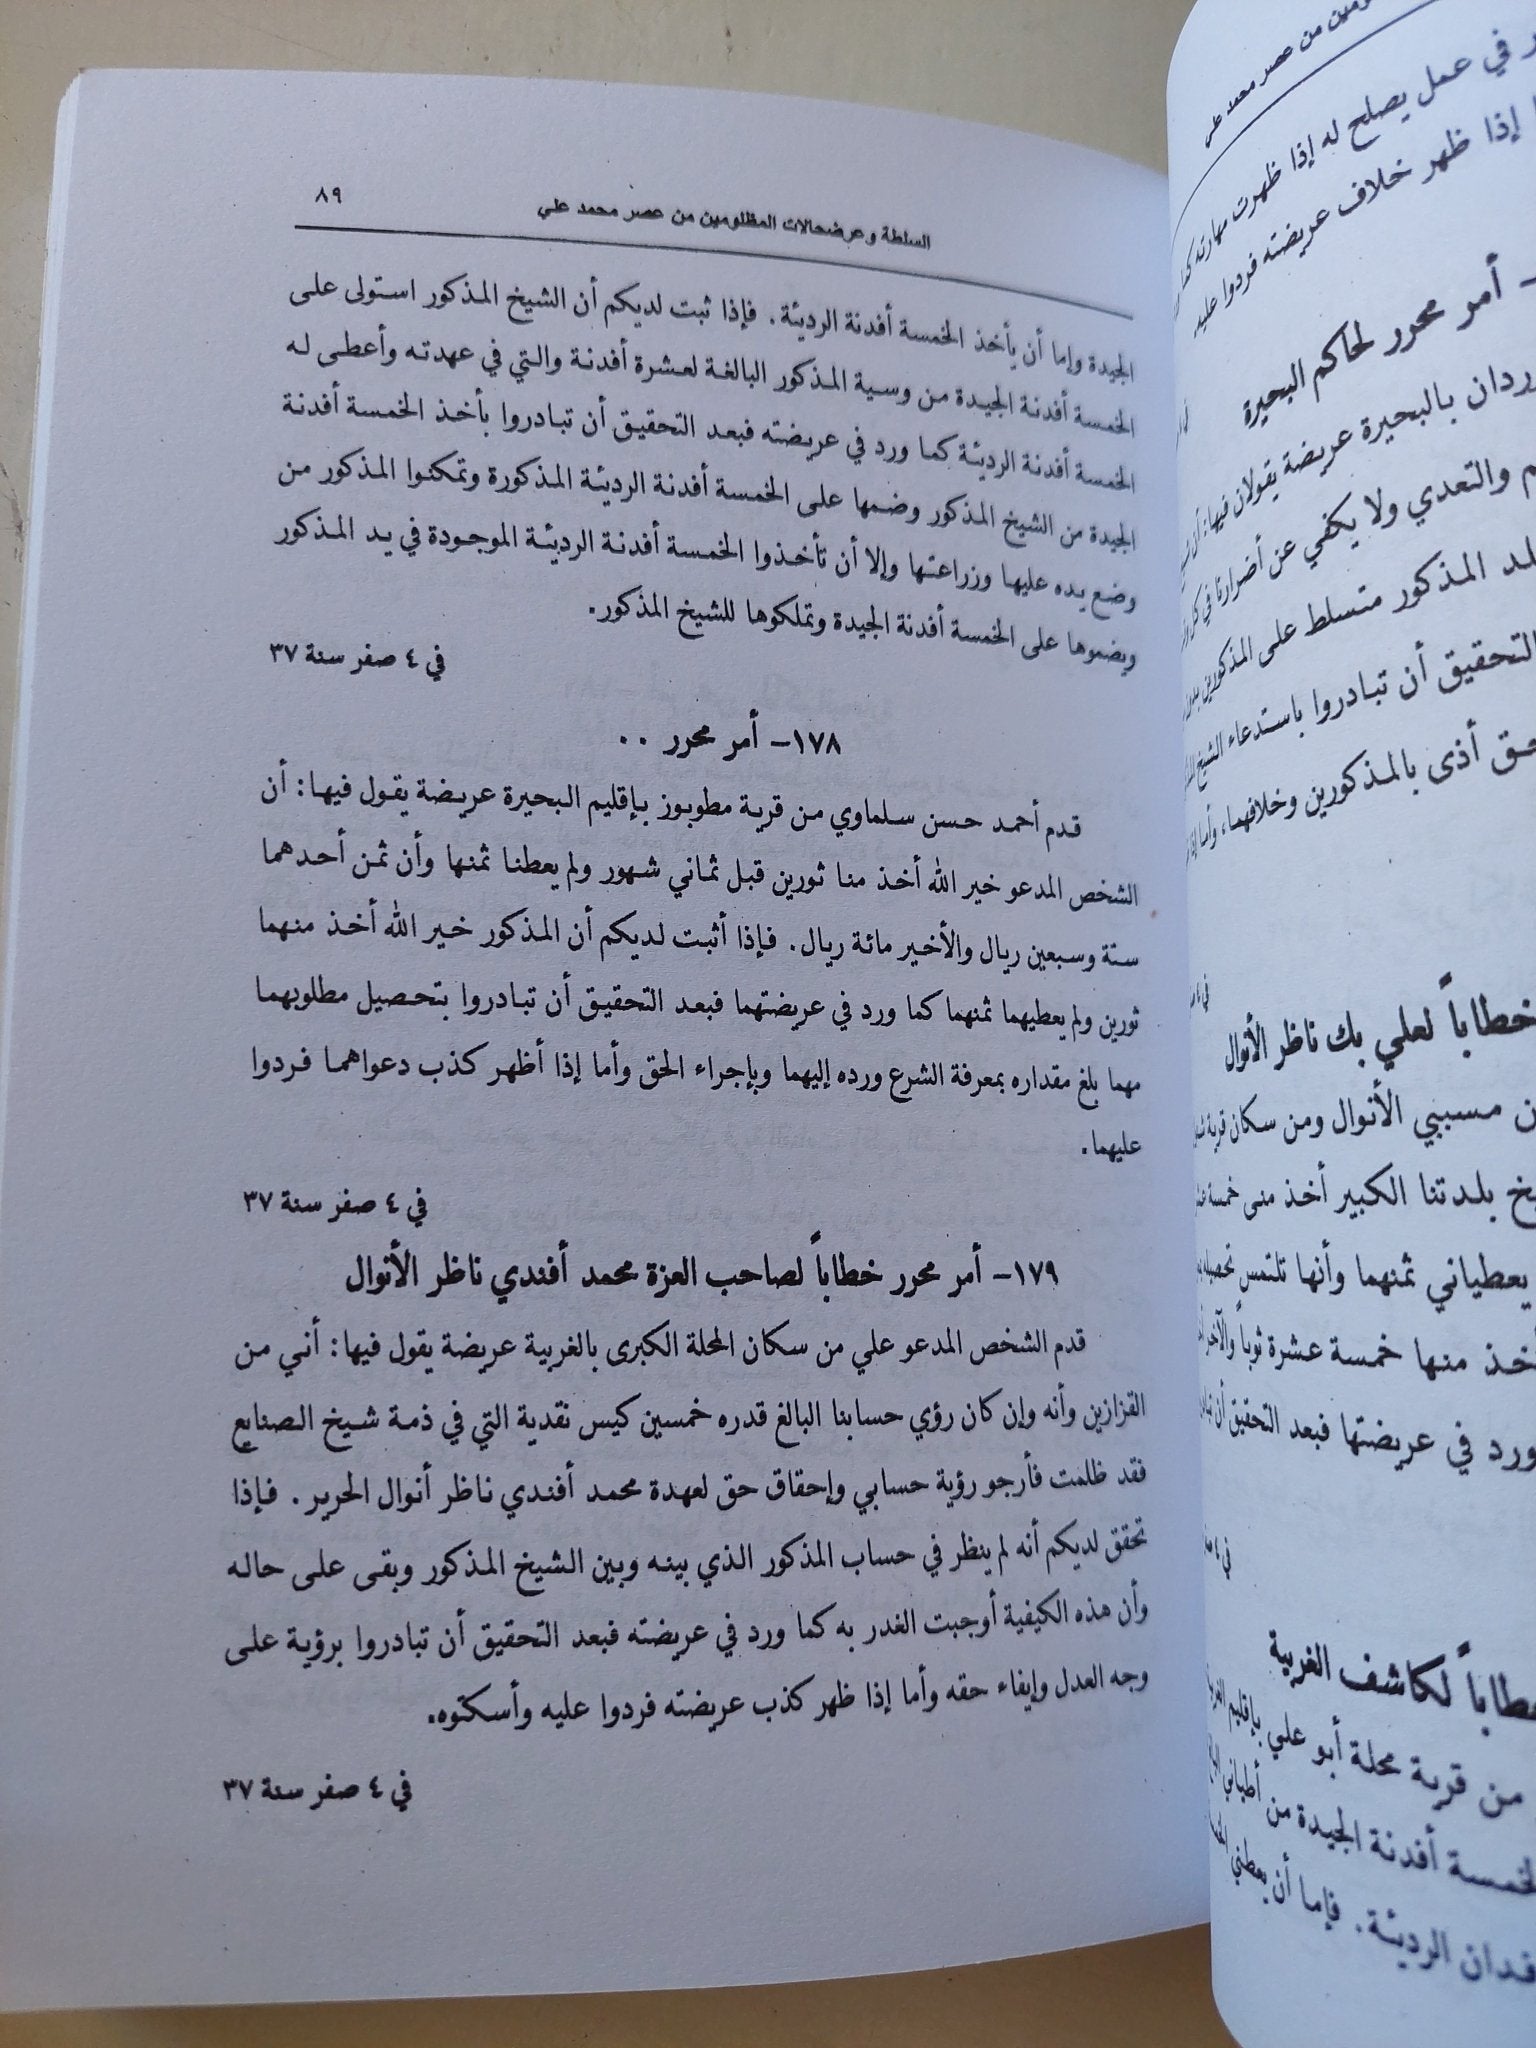 السلطة وعرضحالات المظلومين من عصر محمد علي
٨٩
الجيدة وإما أن يأخذ الخمسة أفدنة الرديئة. فإذا ثبت لديكم أن الشيخ المذكور استولى على
الخمسة أفدنة الجيدة من وسية المذكور البالغة لعشرة أفدنة والتي في عهدته وأعطى له
الخمسة أفدنة الرديئة كما ورد في عريضته فبعد التحقيق أن تبادروا بأخذ الخمسة أفدنة
الجيدة من الشيخ المذكور وضمها على الخمسة أفدنة الرديئة المذكورة وتمكنوا المذكور من
وضع يده عليها وزراعتها وإلا أن تأخذوا الخمسة أفدنة الرديئة الموجودة في يد المذكور
ويضموها على الخمسة أفدنة الجيدة وتملكوها للشيخ المذكور.
في ٤ صفر سنة ٣٧
١٧٨- أمر محرر ..
قدم أحمد حسن سلماوي من قرية مطوبوز بإقليم البحيرة عريضة يقول فيها: أن
الشخص المدعو خير الله أخذ منا ثورين قبل ثماني شهور ولم يعطنا ثمنها وأن ثمن أحدهما
ستة وسبعين ريال والأخير مائة ريال. فإذا أثبت لديكم أن المذكور خير الله أخذ منهما
ثورين ولم يعطيهما ثمنهما كما ورد في عريضتهما فبعد التحقيق أن تبادروا بتحصيل مطلوبهما
مهما بلغ مقداره بمعرفة الشرع ورده إليهما وبإجراء الحق وأما إذا أظهر كذب دعواهما فردوا
عليهما.
في ٤ صفر سنة ٣٧
١٧٩- أمر محرر خطاباً لصاحب العزة محمد أفندي ناظر الأنوال
قدم الشخص المدعو علي من سكان المحلة الكبرى بالغربية عريضة يقول فيها: أنني من
القزازين وأنه وإن كان رؤي حسابنا البالغ قدره خمسين كيس نقدية التي في ذمة شيخ الصنايع
فقد ظلمت فأرجو رؤية حسابي وإحقاق حق لعهدة محمد أفندي ناظر أنوال الحرير. فإذا
تحقق لديكم أنه لم ينظر في حساب المذكور الذي بينه وبين الشيخ المذكور وبقى على حاله
وأن هذه الكيفية أوجبت الغدر به كما ورد في عريضته فبعد التحقيق أن تبادروا برؤية على
وجه العدل وإيفاء حقه وأما إذا ظهر كذب عريضته فردوا عليه وأسكتوه.
في ٤ صفر سنة ٣٧
من عصر محمد علي
في عمل يصلح له إذا ظهرت مهارته
إذا ظهر خلاف عريضته فردوا عليه
- أمر محرر لحاكم البحيرة
بالبحيرة عريضة يقولان فيها: أن
والتعدي ولا يكفي عن أضرارنا في كل
المذكور متسلط على المذكورين
التحقيق أن تبادروا باستدعاء الشيخ
أذى بالمذكورين وخلافهما، وأما
خطاباً لعلي بك ناظر الأنوال
مسببي الأنوال ومن سكان قرية
بلدتنا الكبير أخذ منى خمسة
يعطياني ثمنهما وأنها تلتمس
منها خمسة عشرة ثوباً والآخر
ورد في عريضتها فبعد التحقيق أن
لكاشف الغربية
من قرية محلة أبو علي بإقليم
أفدنة الجيدة من أطياني
الرديئة. فإما أن يعطني